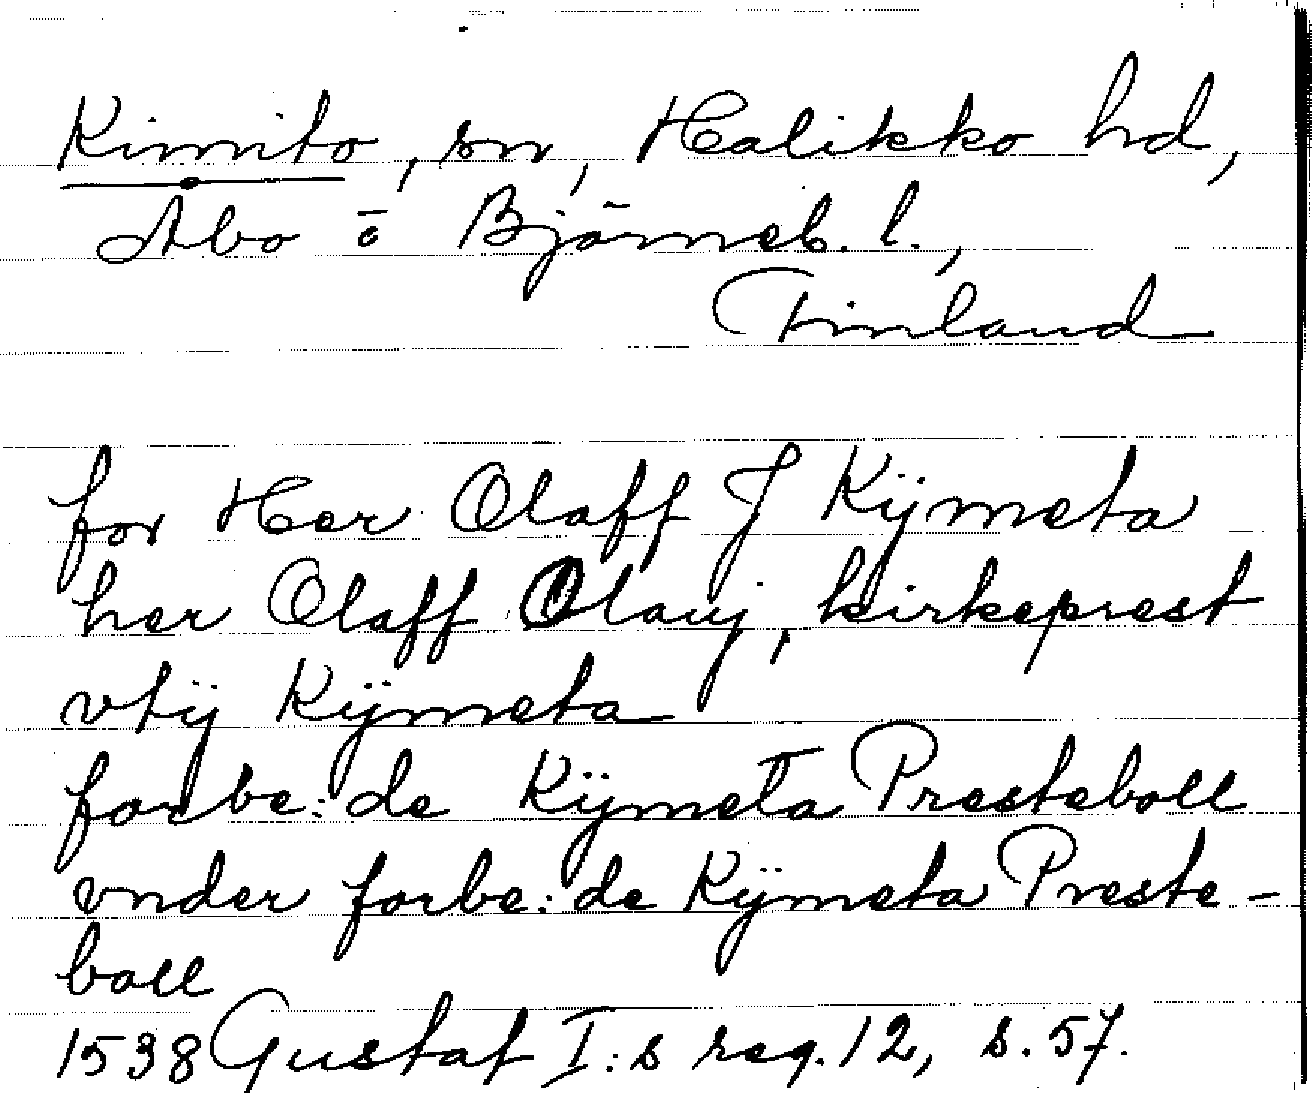 Kimito, sn, Halikko hd,
Åbo o Björneb. l.,
Finland
for Her Olaff J Kÿmeta
her Olaff Olauj, kirkeprest
vtij Kÿmeta
forbe:de Kÿmeta Presteboll
vnder forbe:de Kÿmeta Preste-
boll
1538 Gustaf I:s reg. 12, s. 57.